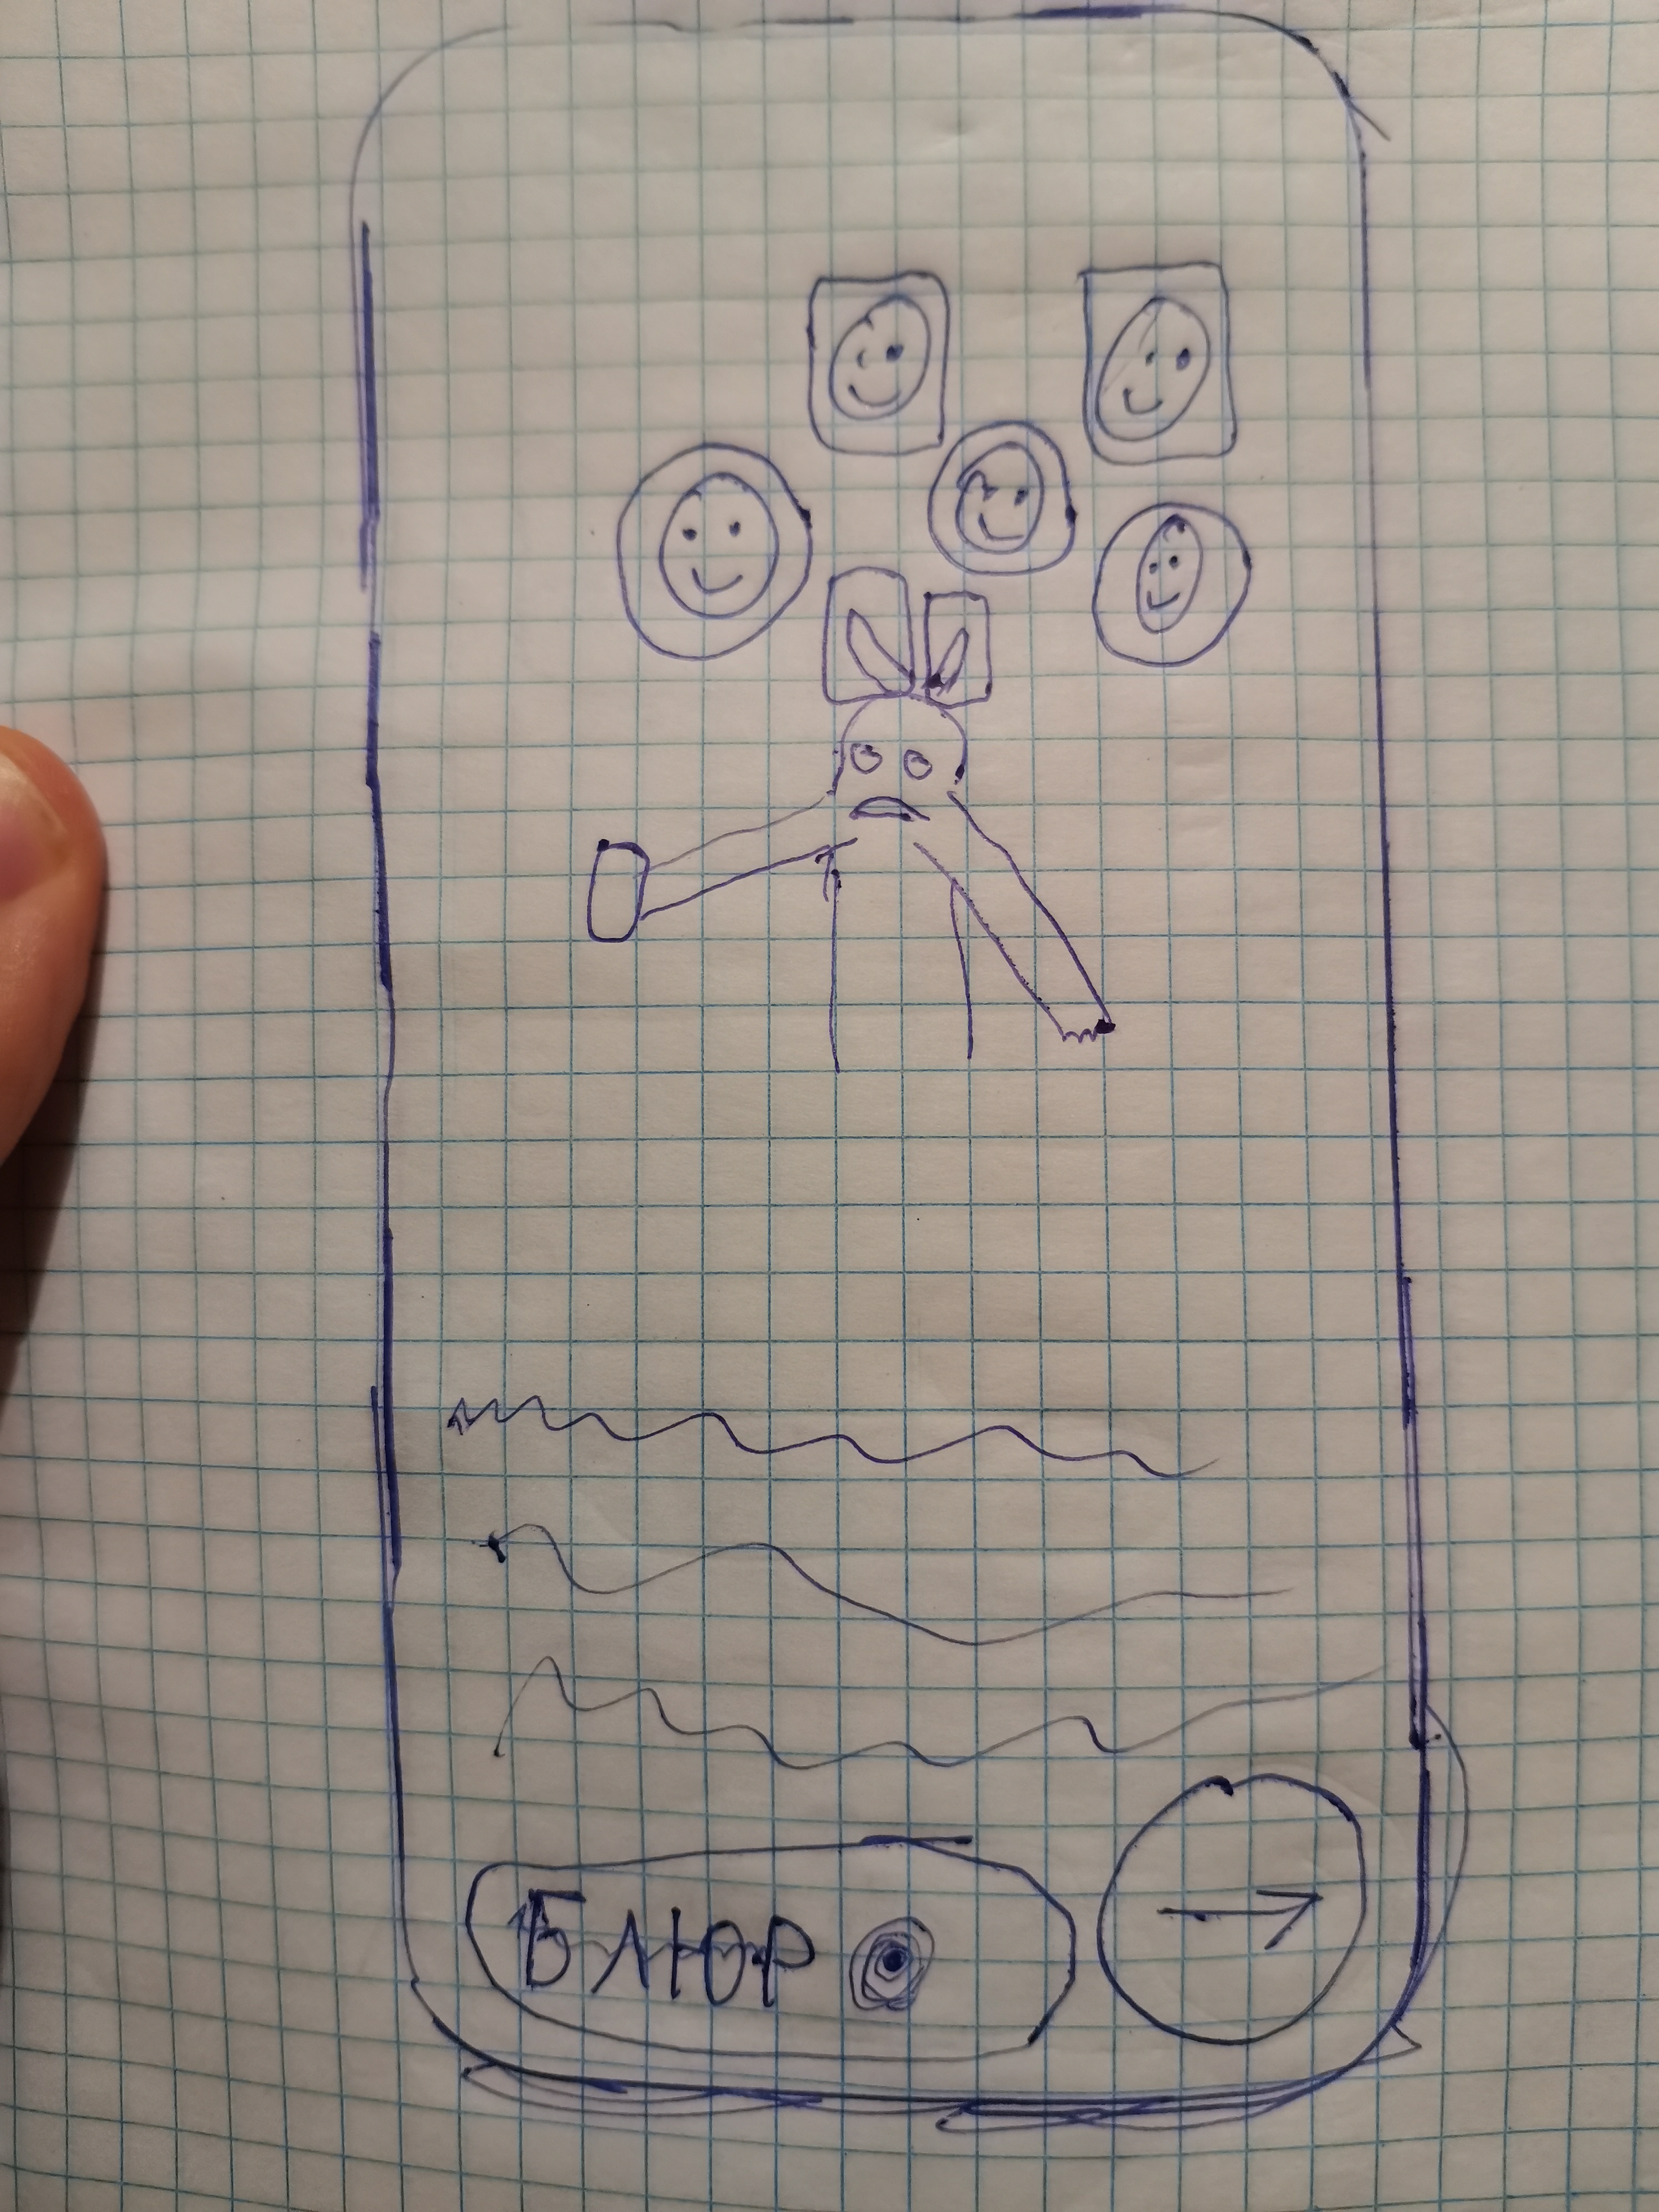 Блюр